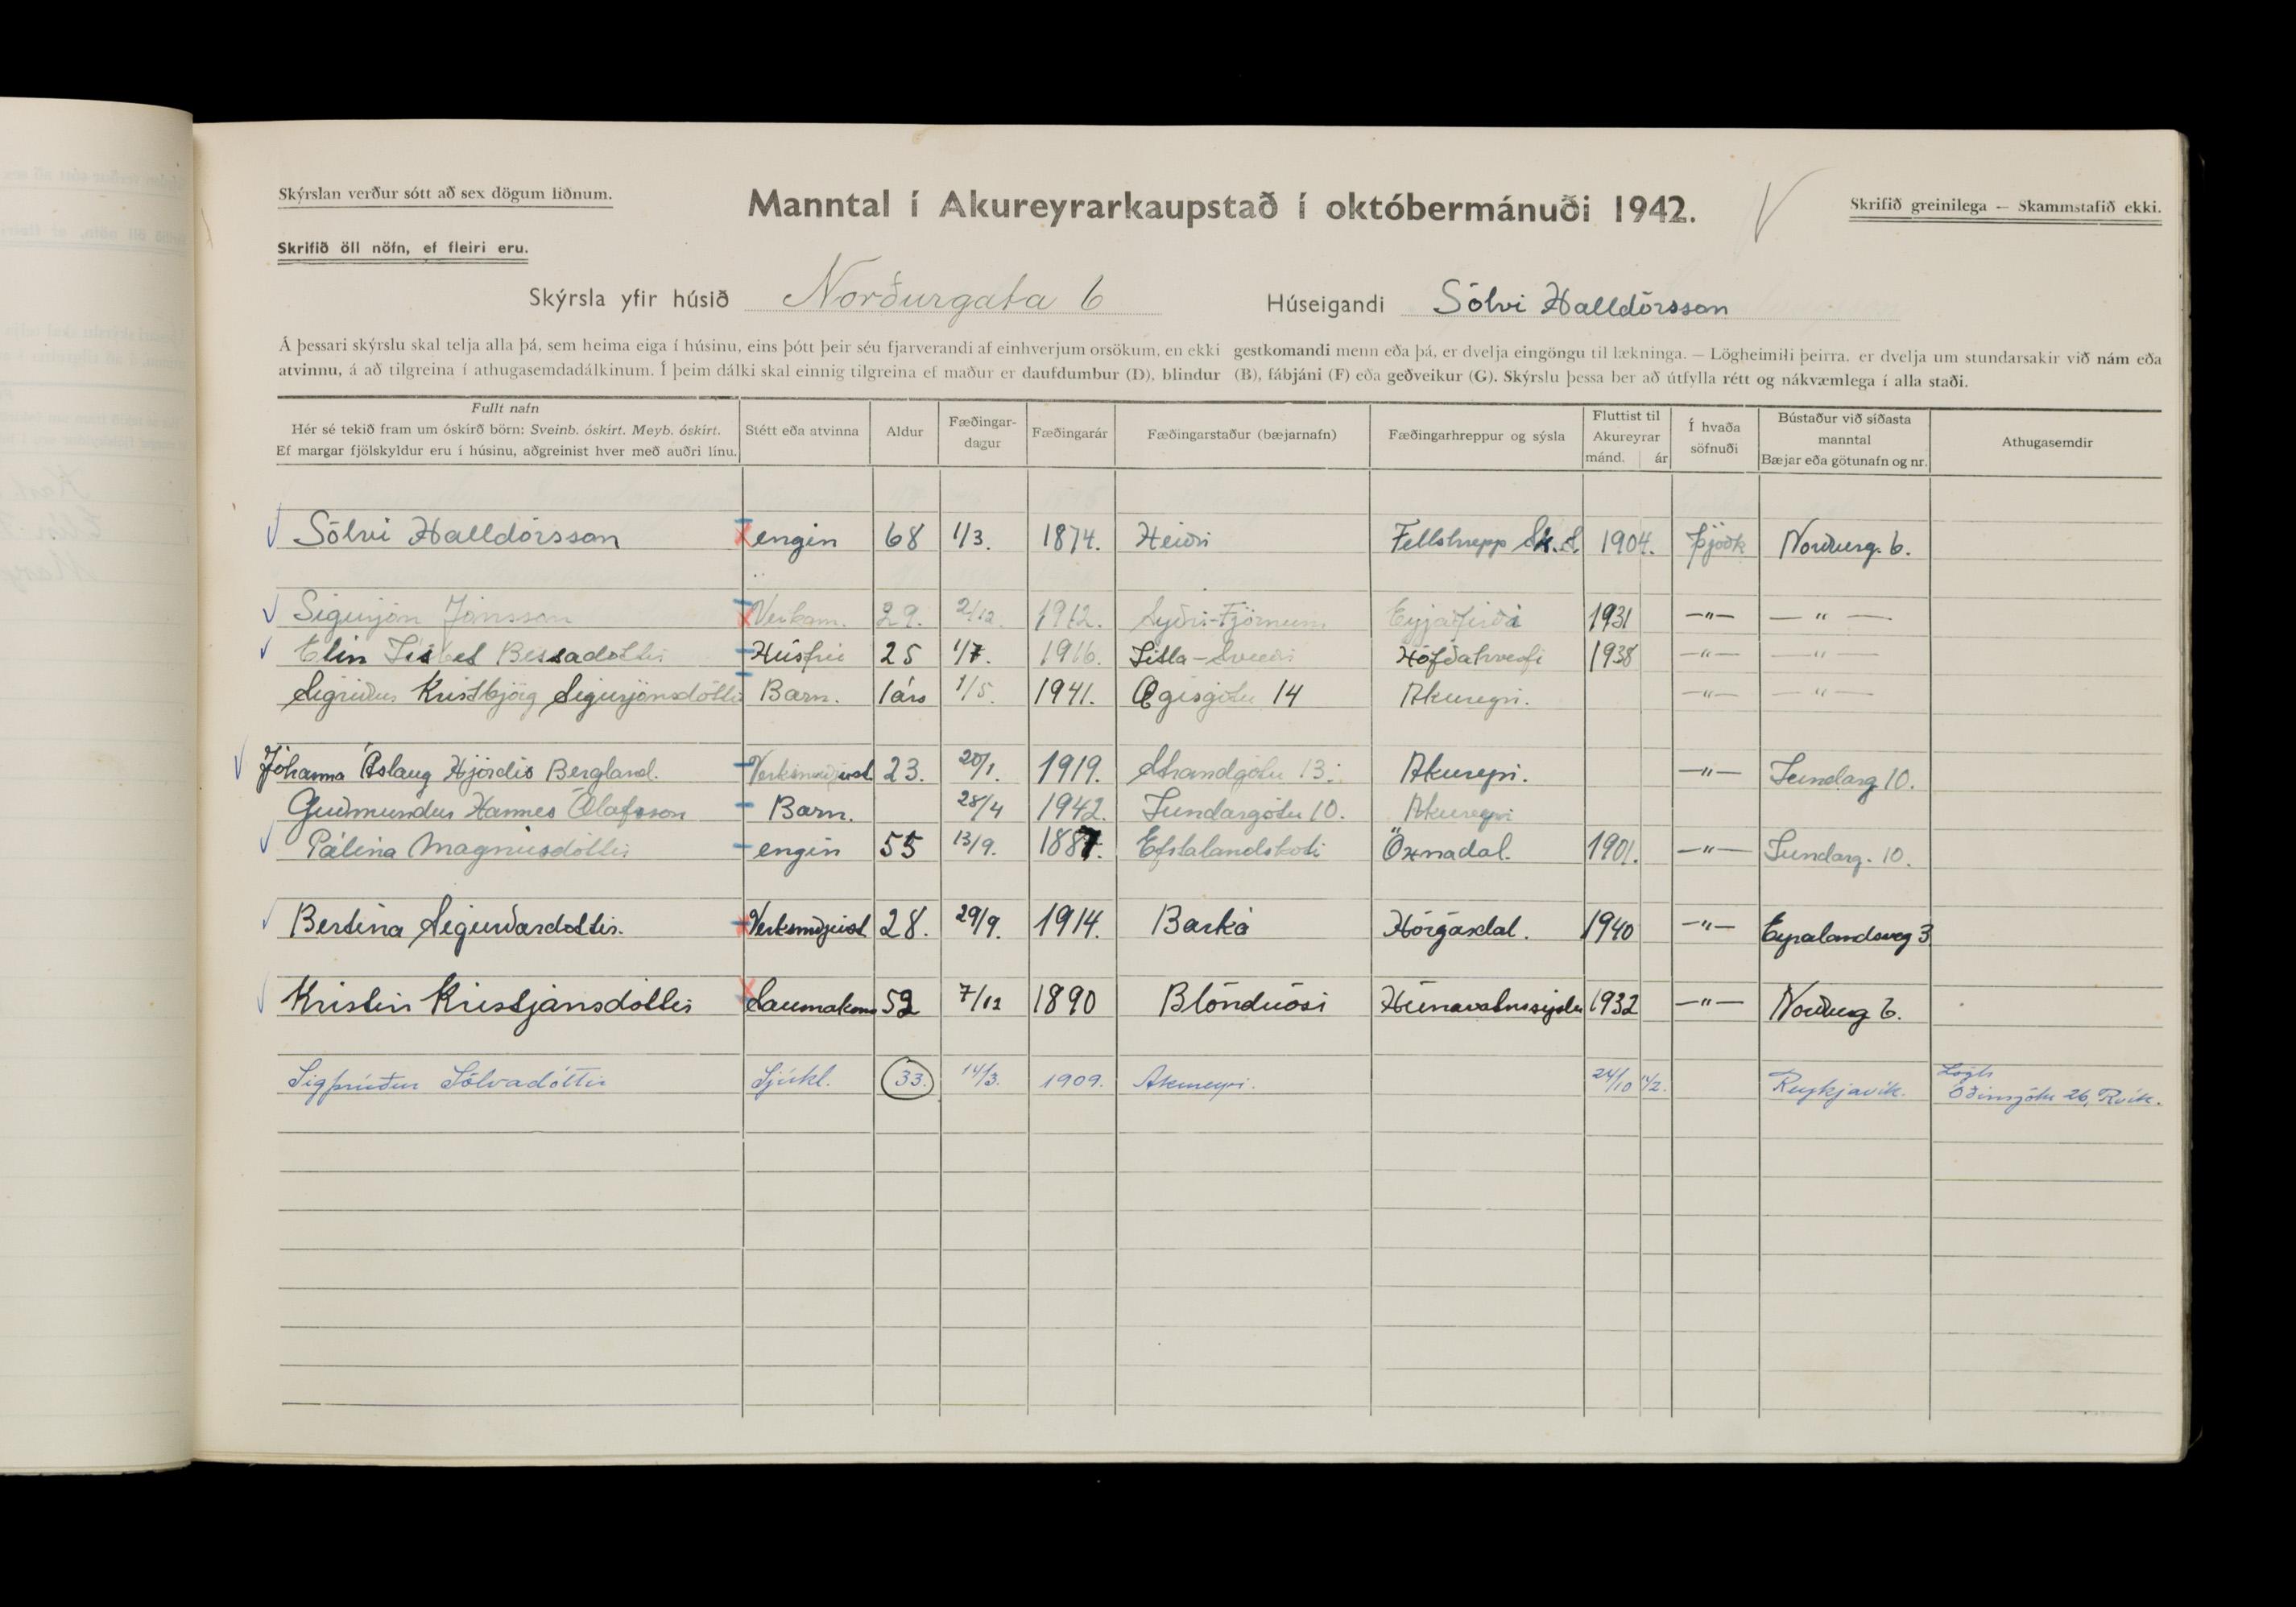 Skýrslan verður sótt að sex dögum liðnum.
Manntal í Akureyrarkaupstað í októbermánuði 1942.
Skrifið greinilega — Skammstafið ekki.
Skrifið öll nöfn, ef fleiri eru.
Skýrsla yfir húsið Norðurgata 6 Húseigandi Sölvi Halldórsson
Á þessari skýrslu skal telja alla þá, sem heima eiga í húsinu, eins þótt þeir séu fjarverandi af einhverjum orsökum, en ekki gestkomandi menn eða þá, er dvelja eingöngu til lækninga. — Lögheimili þeirra, er dvelja um stundarsakir við nám eða
atvinnu, á að tilgreina í athugasemdadálkinum. Í þeim dálki skal einnig tilgreina ef maður er daufdumbur (D), blindur (B), fábjáni (F) eða geðveikur (G). Skýrslu þessa ber að útfylla rétt og nákvæmlega í alla staði.
Fullt nafn
Hér sé tekið fram um óskírð börn: Sveinb. óskírt. Meyb. óskírt.
Ef margar fjölskyldur eru í húsinu, aðgreinist hver með auðri línu.
Stétt eða atvinna
Aldur
Fæðingar-
dagur
Fæðingarár
Fæðingarstaður (bæjarnafn)
Fæðingarhreppur og sýsla
Fluttist til
Akureyrar
mánd. ár
Í hvaða
söfnuði
Bústaður við síðasta
manntal
Bæjar eða götunafn og nr.
Athugasemdir
Sölvi Halldórsson engin 68 1/3. 1874. Heiði Fellshrepp Sk.S. 1904. Þjóðk Norðurg. 6.
Sigurjón Jónsson Verkam. 29. 2/12. 1912. Syðri-Tjörnum Eyjafirði 1931 —"— —"—
Elin Lisbet Bessadóttir Húsfrú 25 1/7. 1916. Litla-Svæði Höfðahverfi 1938 —"— —"—
Sigriður Kristbjörg Sigurjónsdóttir Barn. 1árs 1/5. 1941. Ægisgötu 14 Akureyri. —"— —"—
Jóhanna Áslaug Hjördis Bergland. Verksmiðjust. 23. 20/1. 1919. Strandgötu 13. Akureyri. —"— Lundarg 10.
Guðmundur Hannes Ólafsson Barn. 28/4 1942. Lundargötu 10. Akureyri
Pálina Magnúsdóttir engin 55 13/9. 1887. Efstalandskoti Öxnadal. 1901. —"— Lundarg. 10.
Bertina Sigurðardóttir. Verksmiðjust. 28. 29/9. 1914. Barká Hörgárdal. 1940 —"— Eyralandsveg 3
Kristin Kristjánsdóttir Saumakona 52 7/12 1890 Blönduósi Húnavatnssýslu 1932 —"— Norðurg 6.
Sigþrúður Sölvadóttir Sjúkl. 33. 14/3. 1909. Akureyri. 24/10 '42. Reykjavík. Lögh
Óðinsgötu 26, Rvík.